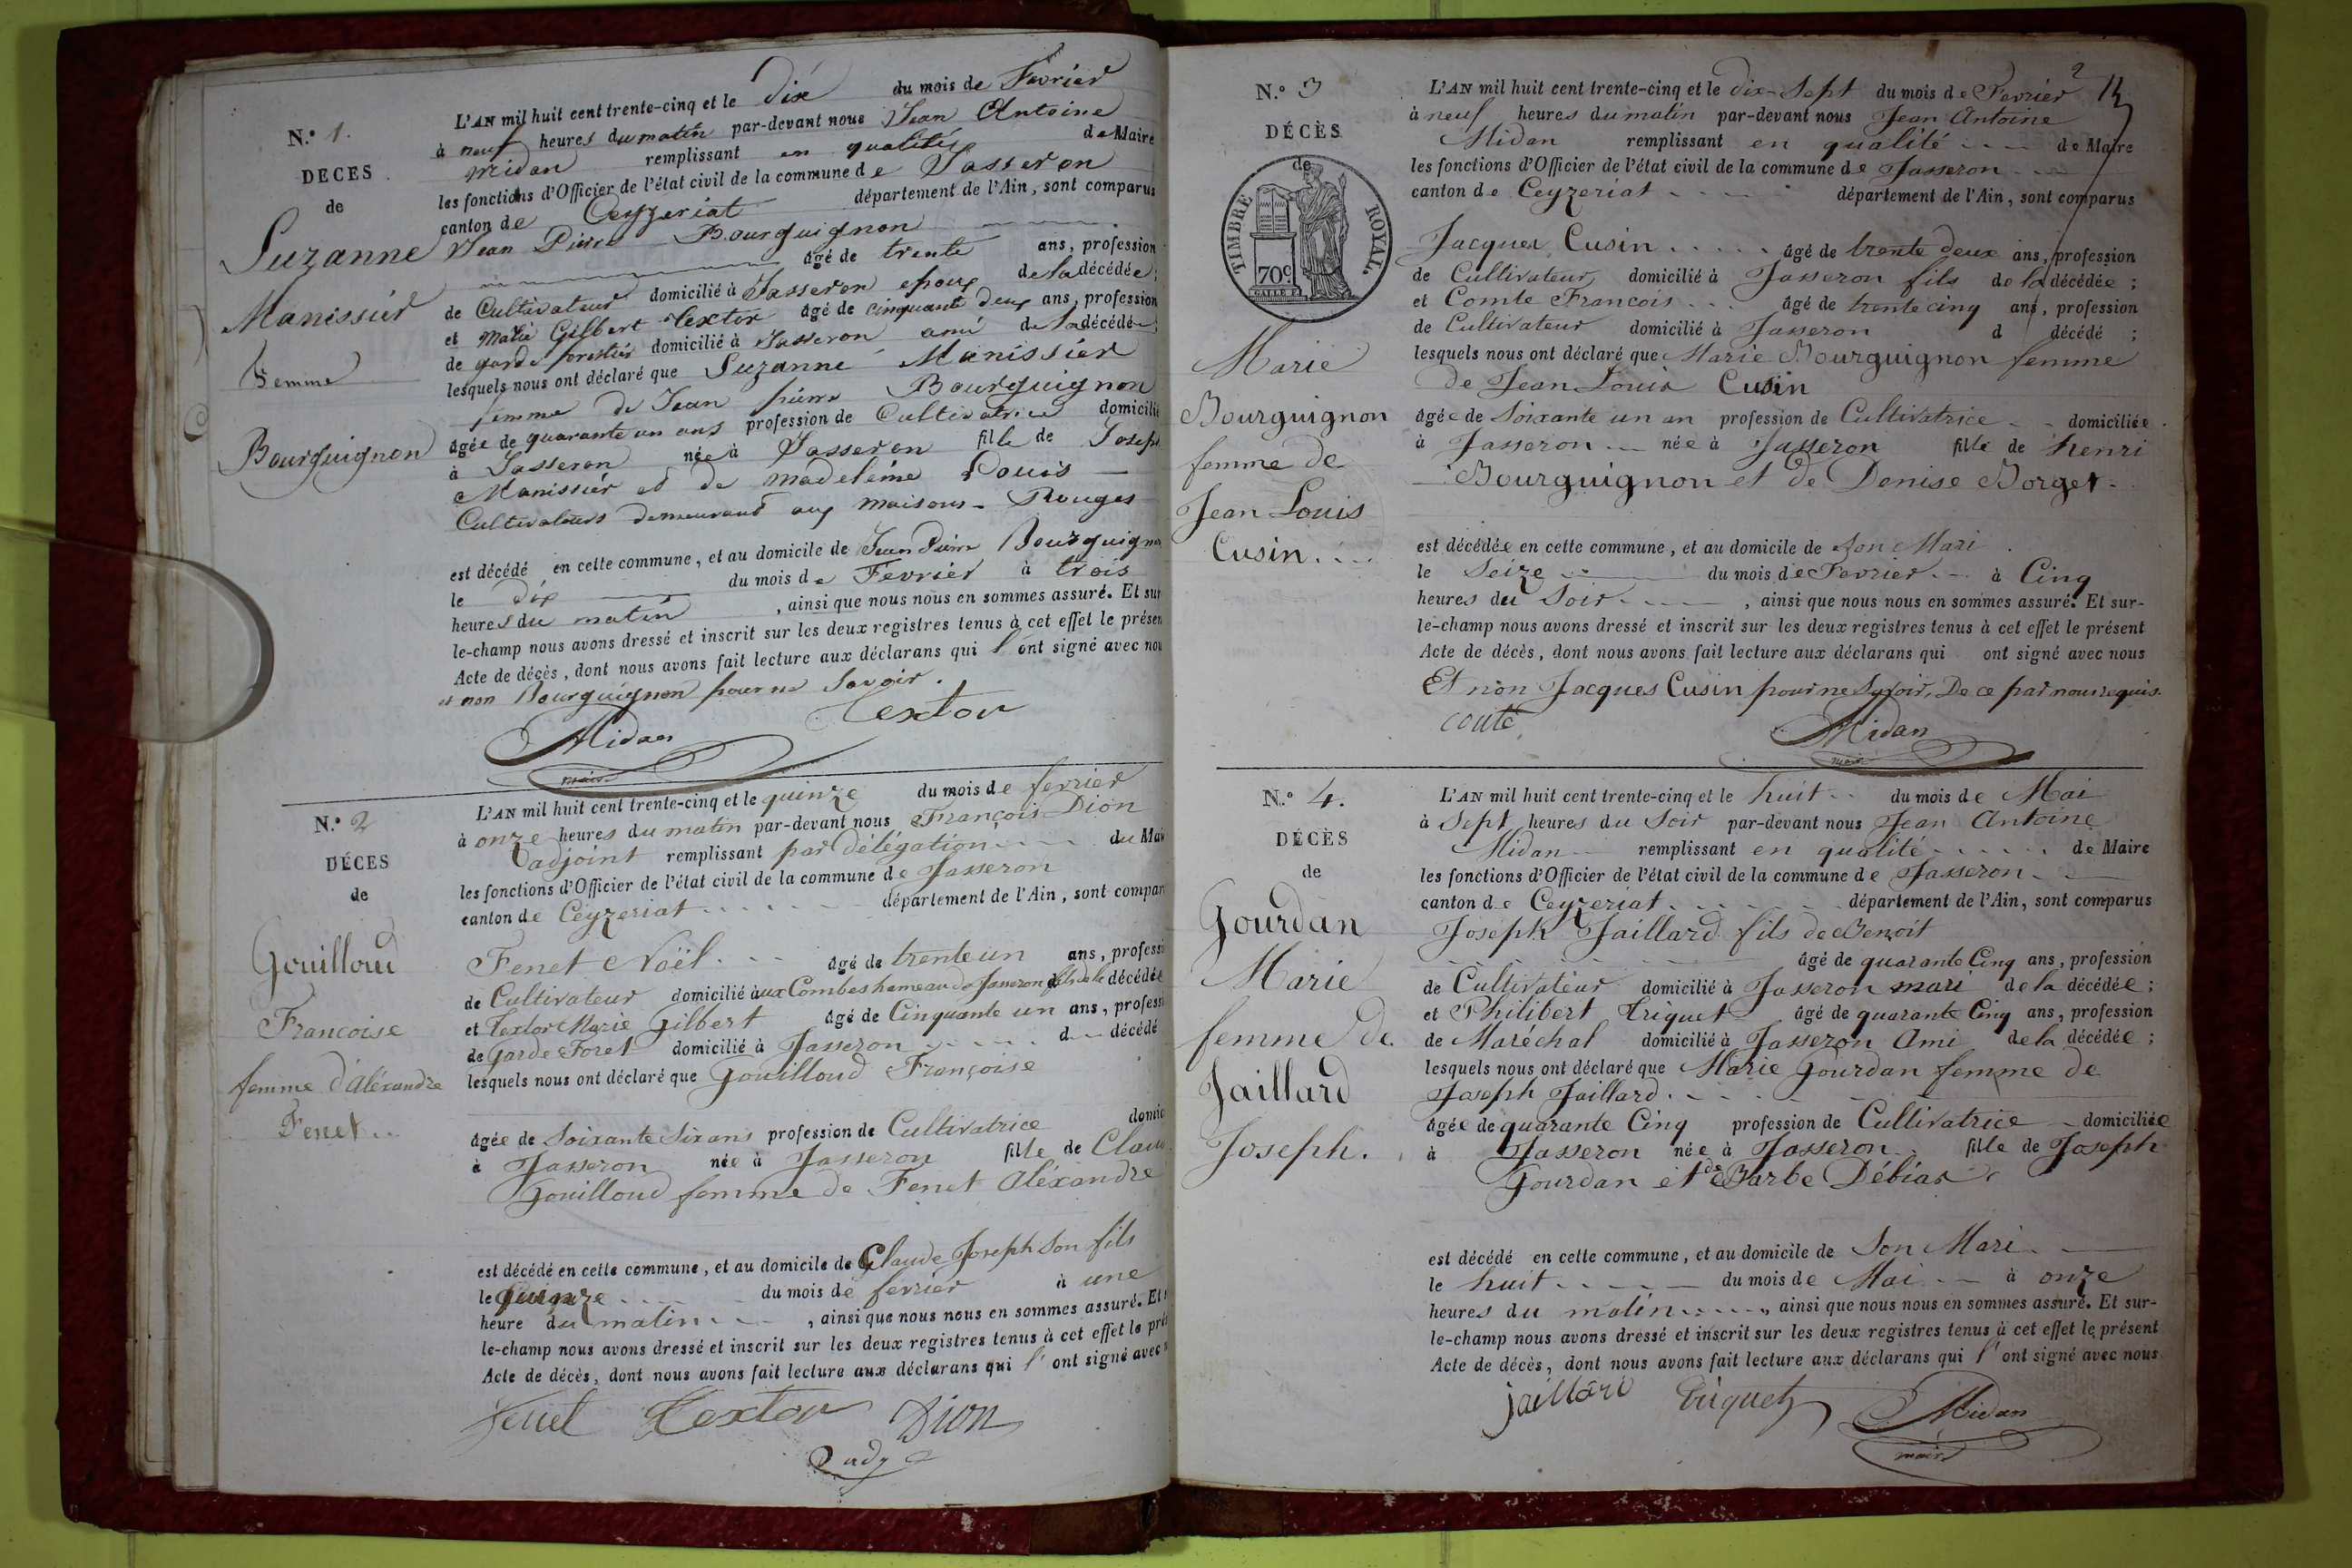 N.° 1.
DÉCES
de
Suzanne
Manissier
femme
Bourguignon
L'AN mil huit cent trente-cinq et le dix du mois de Fevrier
à neuf heures du matin par-devant nous Jean Antoine
Midan remplissant en qualité de Maire
les fonctions d'Officier de l'état civil de la commune de Jasseron
canton de Ceyzeriat département de l'Ain, sont comparus
Jean Pierre Bourguignon
âgé de trente ans, profession
de Cultivateur domicilié à Jasseron epoux de la décédée;
et Marie Gilbert Textor âgé de cinquante deux ans, profession
de garde forestier domicilié à Jasseron ami de la décédée;
lesquels nous ont déclaré que Suzanne Manissier
femme de Jean pierre Bourguignon
âgée de quarante un ans profession de Cultivatrice domicilié
à Jasseron née à Jasseron fille de Joseph
Manissier et de madeleine Louis
Cultivateurs demeurant aux maisons-Rouges
est décédé en cette commune, et au domicile de Jean Pierre Bourguignon
le dix du mois de Fevrier à trois
heures du matin, ainsi que nous nous en sommes assuré. Et sur
le-champ nous avons dressé et inscrit sur les deux registres tenus à cet effet le présen
Acte de décès, dont nous avons fait lecture aux déclarans qui l'ont signé avec nou
et non Bourguignon pour ne Savoir.
Midan Textor
maire
N.° 2
DÉCES
de
Gouilloud
Francoise
femme d'Aléxandre
Fenet..
L'AN mil huit cent trente-cinq et le quinze du mois de fevrier
à onze heures du matin par-devant nous François Dion
adjoint remplissant par délégation du Mai
les fonctions d'Officier de l'état civil de la commune de Jasseron
canton de Ceyzeriat département de l'Ain, sont compar
Fenet Noël âgé de trente un ans, professi
de Cultivateur domicilié aux Combes hameau de Jasseron fils de la décédée
et Textor Marie Gilbert âgé de Cinquante un ans, profess
de Garde Foret domicilié à Jasseron d décédé
lesquels nous ont déclaré que Gouilloud Françoise
âgée de Soixante Six ans profession de Cultivatrice domic
à Jasseron née à Jasseron fille de Clau
Gouilloud femme de Fenet Aléxandre
est décédé en cette commune, et au domicile de Claude Joseph Son fils
le quinze du mois de fevrier à une
heure du matin, ainsi que nous nous en sommes assuré. Et s
le-champ nous avons dressé et inscrit sur les deux registres tenus à cet effet le pré
Acte de décès, dont nous avons fait lecture aux déclarans qui l'ont signé avec n
fenet Textor Dion
adj
2
N.° 3
DÉCÈS
de
TIMBRE ROYAL.
70c.
Marie
Bourguignon
femme de
Jean Louis
Cusin.
L'AN mil huit cent trente-cinq et le dix-Sept du mois de Fevrier
à neuf heures du matin par-devant nous Jean Antoine
Midan remplissant en qualité de Maire
les fonctions d'Officier de l'état civil de la commune de Jasseron
canton de Ceyzeriat département de l'Ain, sont comparus
Jacques Cusin âgé de trente deux ans, profession
de Cultivateur domicilié à Jasseron fils de la décédée;
et Comte François âgé de trente cinq ans, profession
de Cultivateur domicilié à Jasseron d décédé;
lesquels nous ont déclaré que Marie Bourguignon femme
de Jean Louis Cusin
âgée de Soixante un an profession de Cultivatrice domiciliée
à Jasseron née à Jasseron fille de henri
Bourguignon et de Denise Borget.
est décédée en cette commune, et au domicile de Son Mari
le Seize du mois de Fevrier à Cinq
heures du Soir, ainsi que nous nous en sommes assuré. Et sur-
le-champ nous avons dressé et inscrit sur les deux registres tenus à cet effet le présent
Acte de décès, dont nous avons fait lecture aux déclarans qui ont signé avec nous
Et non Jacques Cusin pour ne Savoir, De ce par nous requis.
conte Midan
maire
N.° 4.
DÉCÈS
de
Gourdan
Marie
femme de
Jaillard
Joseph.
L'AN mil huit cent trente-cinq et le huit du mois de Mai
à Sept heures du Soir par-devant nous Jean Antoine
Midan remplissant en qualité de Maire
les fonctions d'Officier de l'état civil de la commune de Jasseron
canton de Ceyzeriat département de l'Ain, sont comparus
Joseph Jaillard fils de Benoit
âgé de quarante Cinq ans, profession
de Cultivateur domicilié à Jasseron mari de la décédée;
et Philibert Triquet âgé de quarante Cinq ans, profession
de Maréchal domicilié à Jasseron Ami de la décédée;
lesquels nous ont déclaré que Marie Gourdan femme de
Joseph Jaillard.
âgée de quarante Cinq profession de Cultivatrice domiciliée
à Jasseron née à Jasseron fille de Joseph
Gourdan et de Barbe Débias
est décédé en cette commune, et au domicile de Son Mari
le huit du mois de Mai à onze
heures du matin, ainsi que nous nous en sommes assuré. Et sur-
le-champ nous avons dressé et inscrit sur les deux registres tenus à cet effet le présent
Acte de décès, dont nous avons fait lecture aux déclarans qui l'ont signé avec nous
jaillard triquet Midan
maire